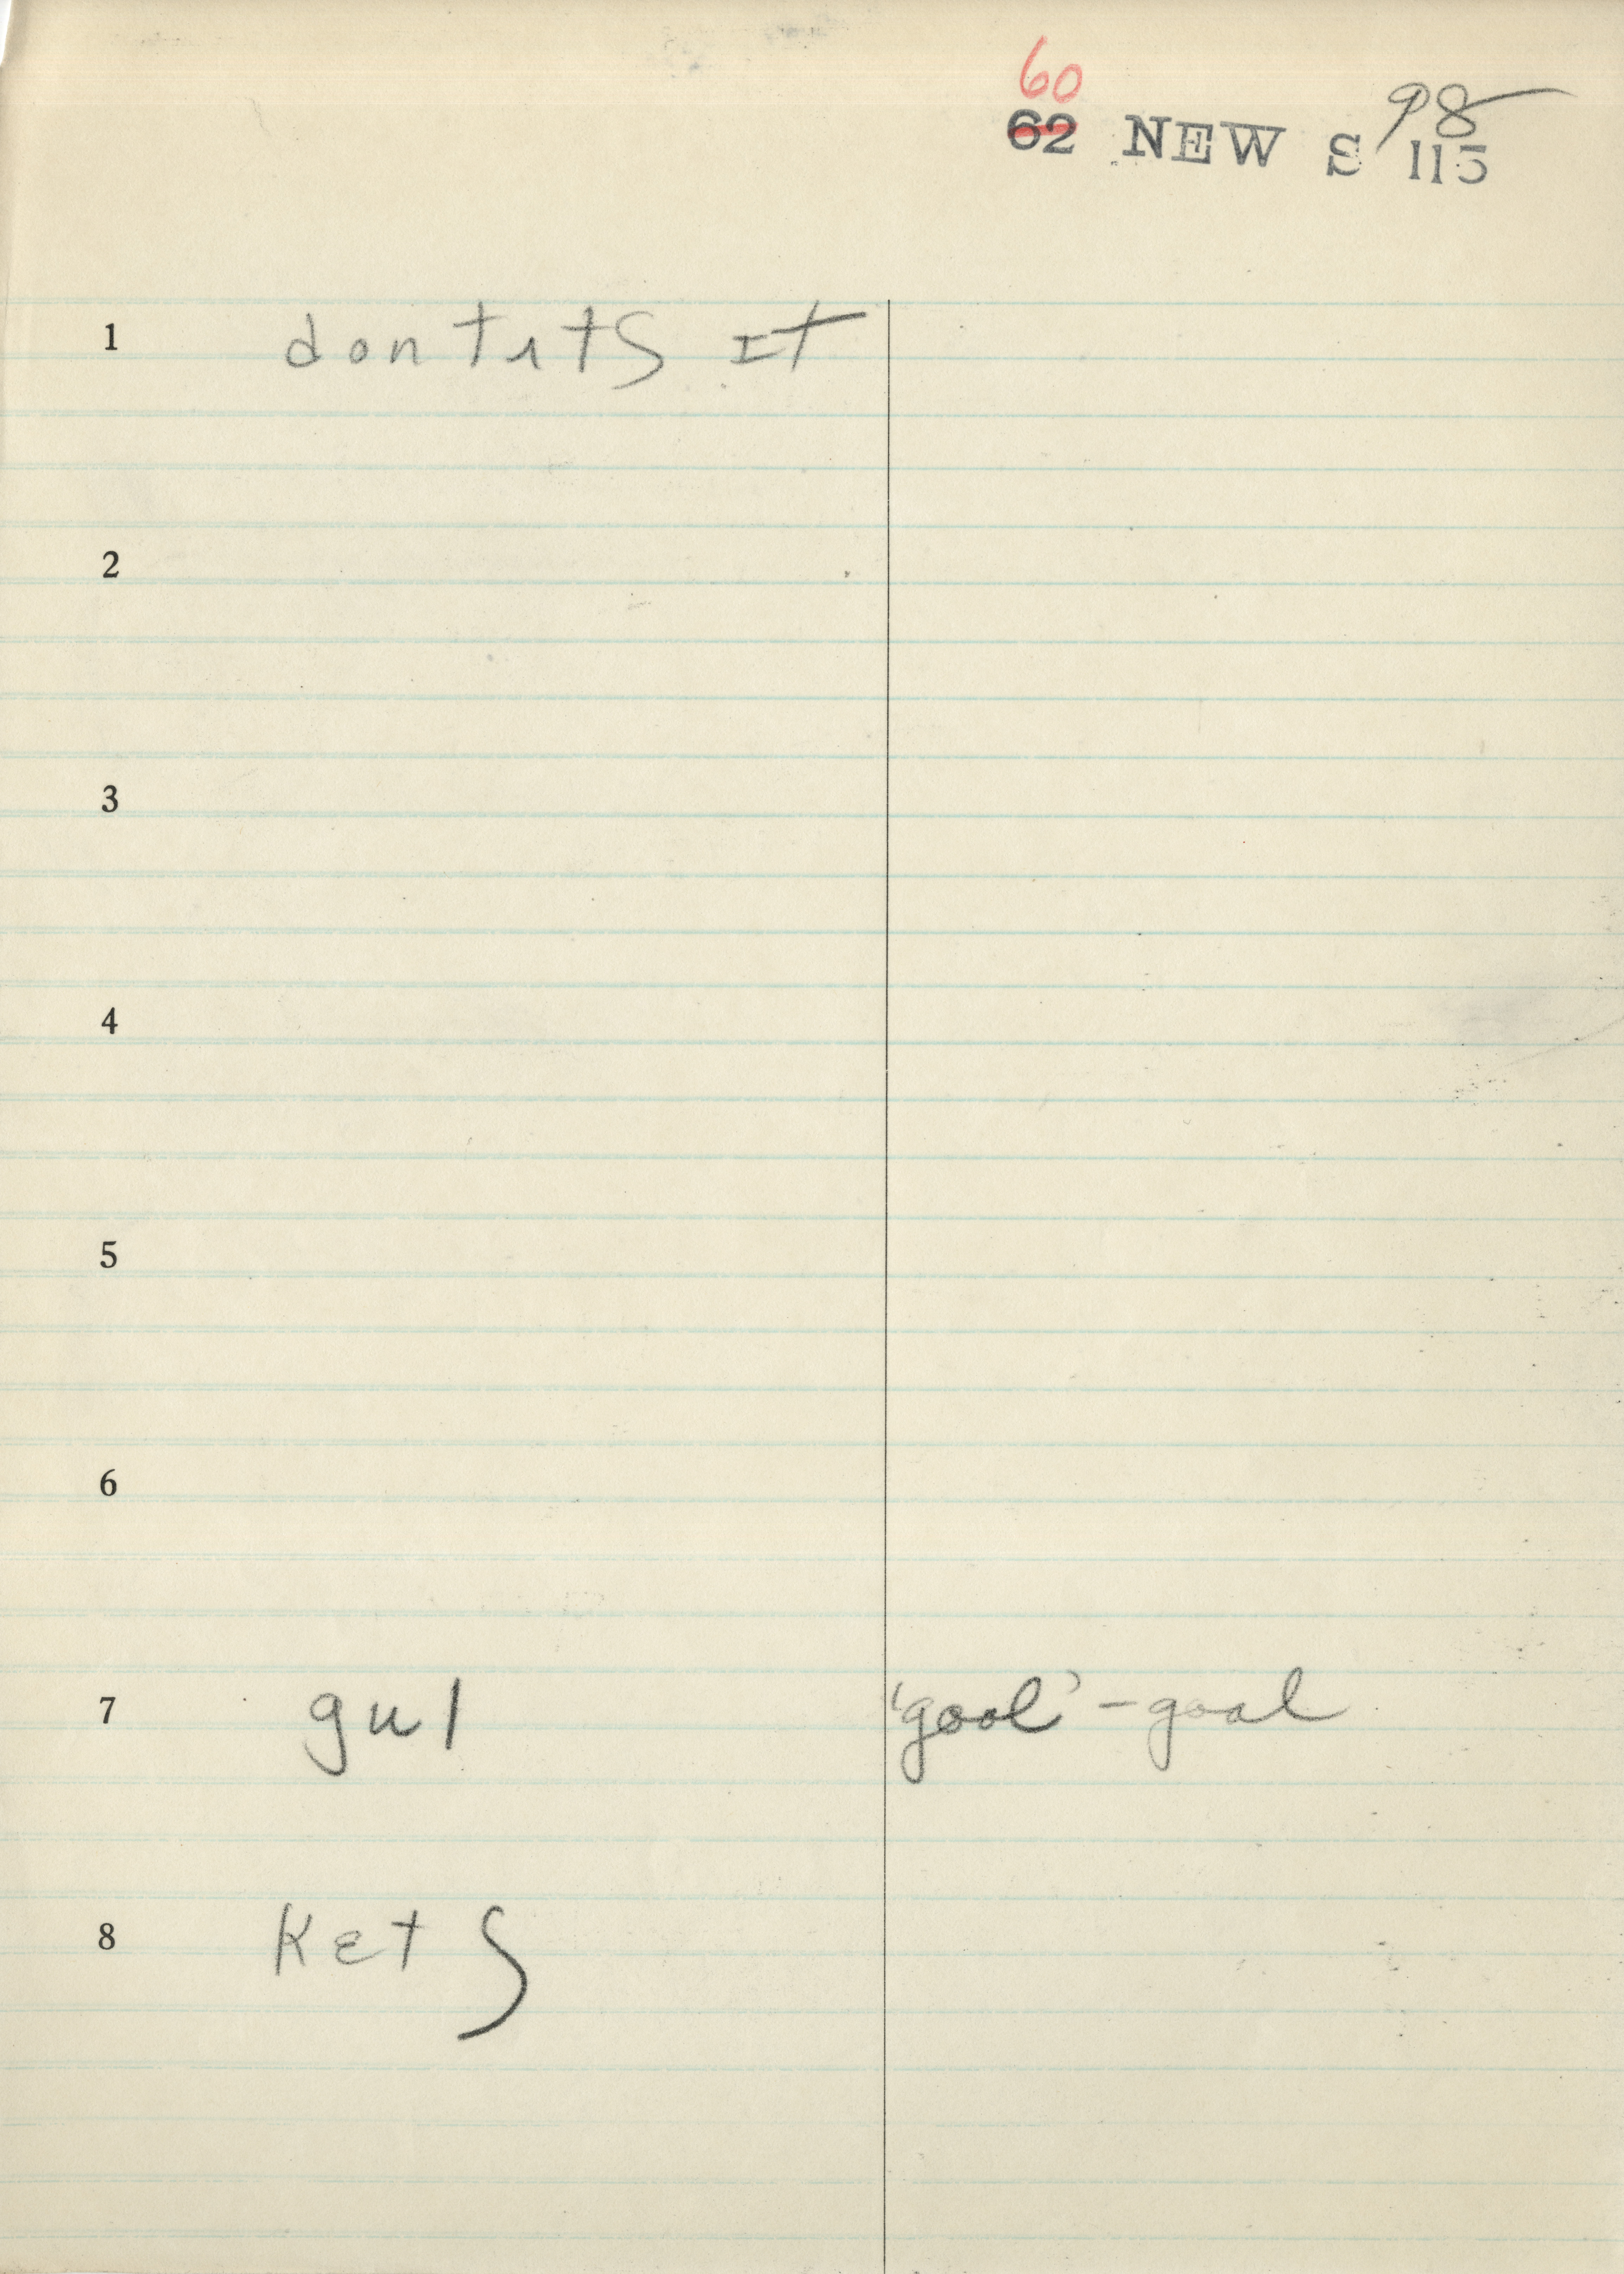 60
62 NEW S 115
98
1 dont ʌtʃ ɪt
2
3
4
5
6
7 gul 'gool' – goal
8 kɛtʃ